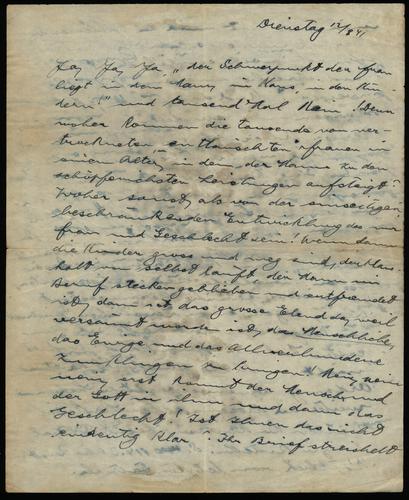 Dienstag 12/8 41
Ja, Ja, Ja, „der Schwerpunkt der Frau
liegt in dem Mann, im Haus, in den Kin
dern!" und tausend Mal Nein! Denn
woher kommen die tausende von ver-
trockneten, enttäuschten Frauen in
einem Alter, in dem der Mann zu den
schöpferischsten Leistungen aufsteigt?
Woher sonst, als von der einseitigen
beschränkenden Entwicklung des nur
Frau und Geschlecht sein! Wenn dann
die Kinder gross und weg sind, der Haus
halt von selbst läuft, der Mann im
Beruf stecken geblieben und entfremdet
ist, dann ist das grosse Elend da, weil
versäumt worden ist, das Menschliche,
das Ewige und das Allverbindende
zum Klingen zu bringen! Nein, nein
nein, erst kommt der Mensch und
der Gott in ihm und dann das
Geschlecht! Ist Ihnen das nicht
eindeutig klar? Ihr Brief streichelt